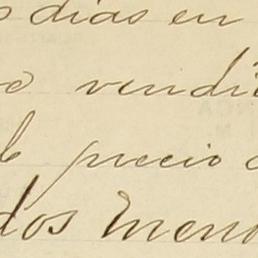 s dias en
o vendi
precio
dos meno